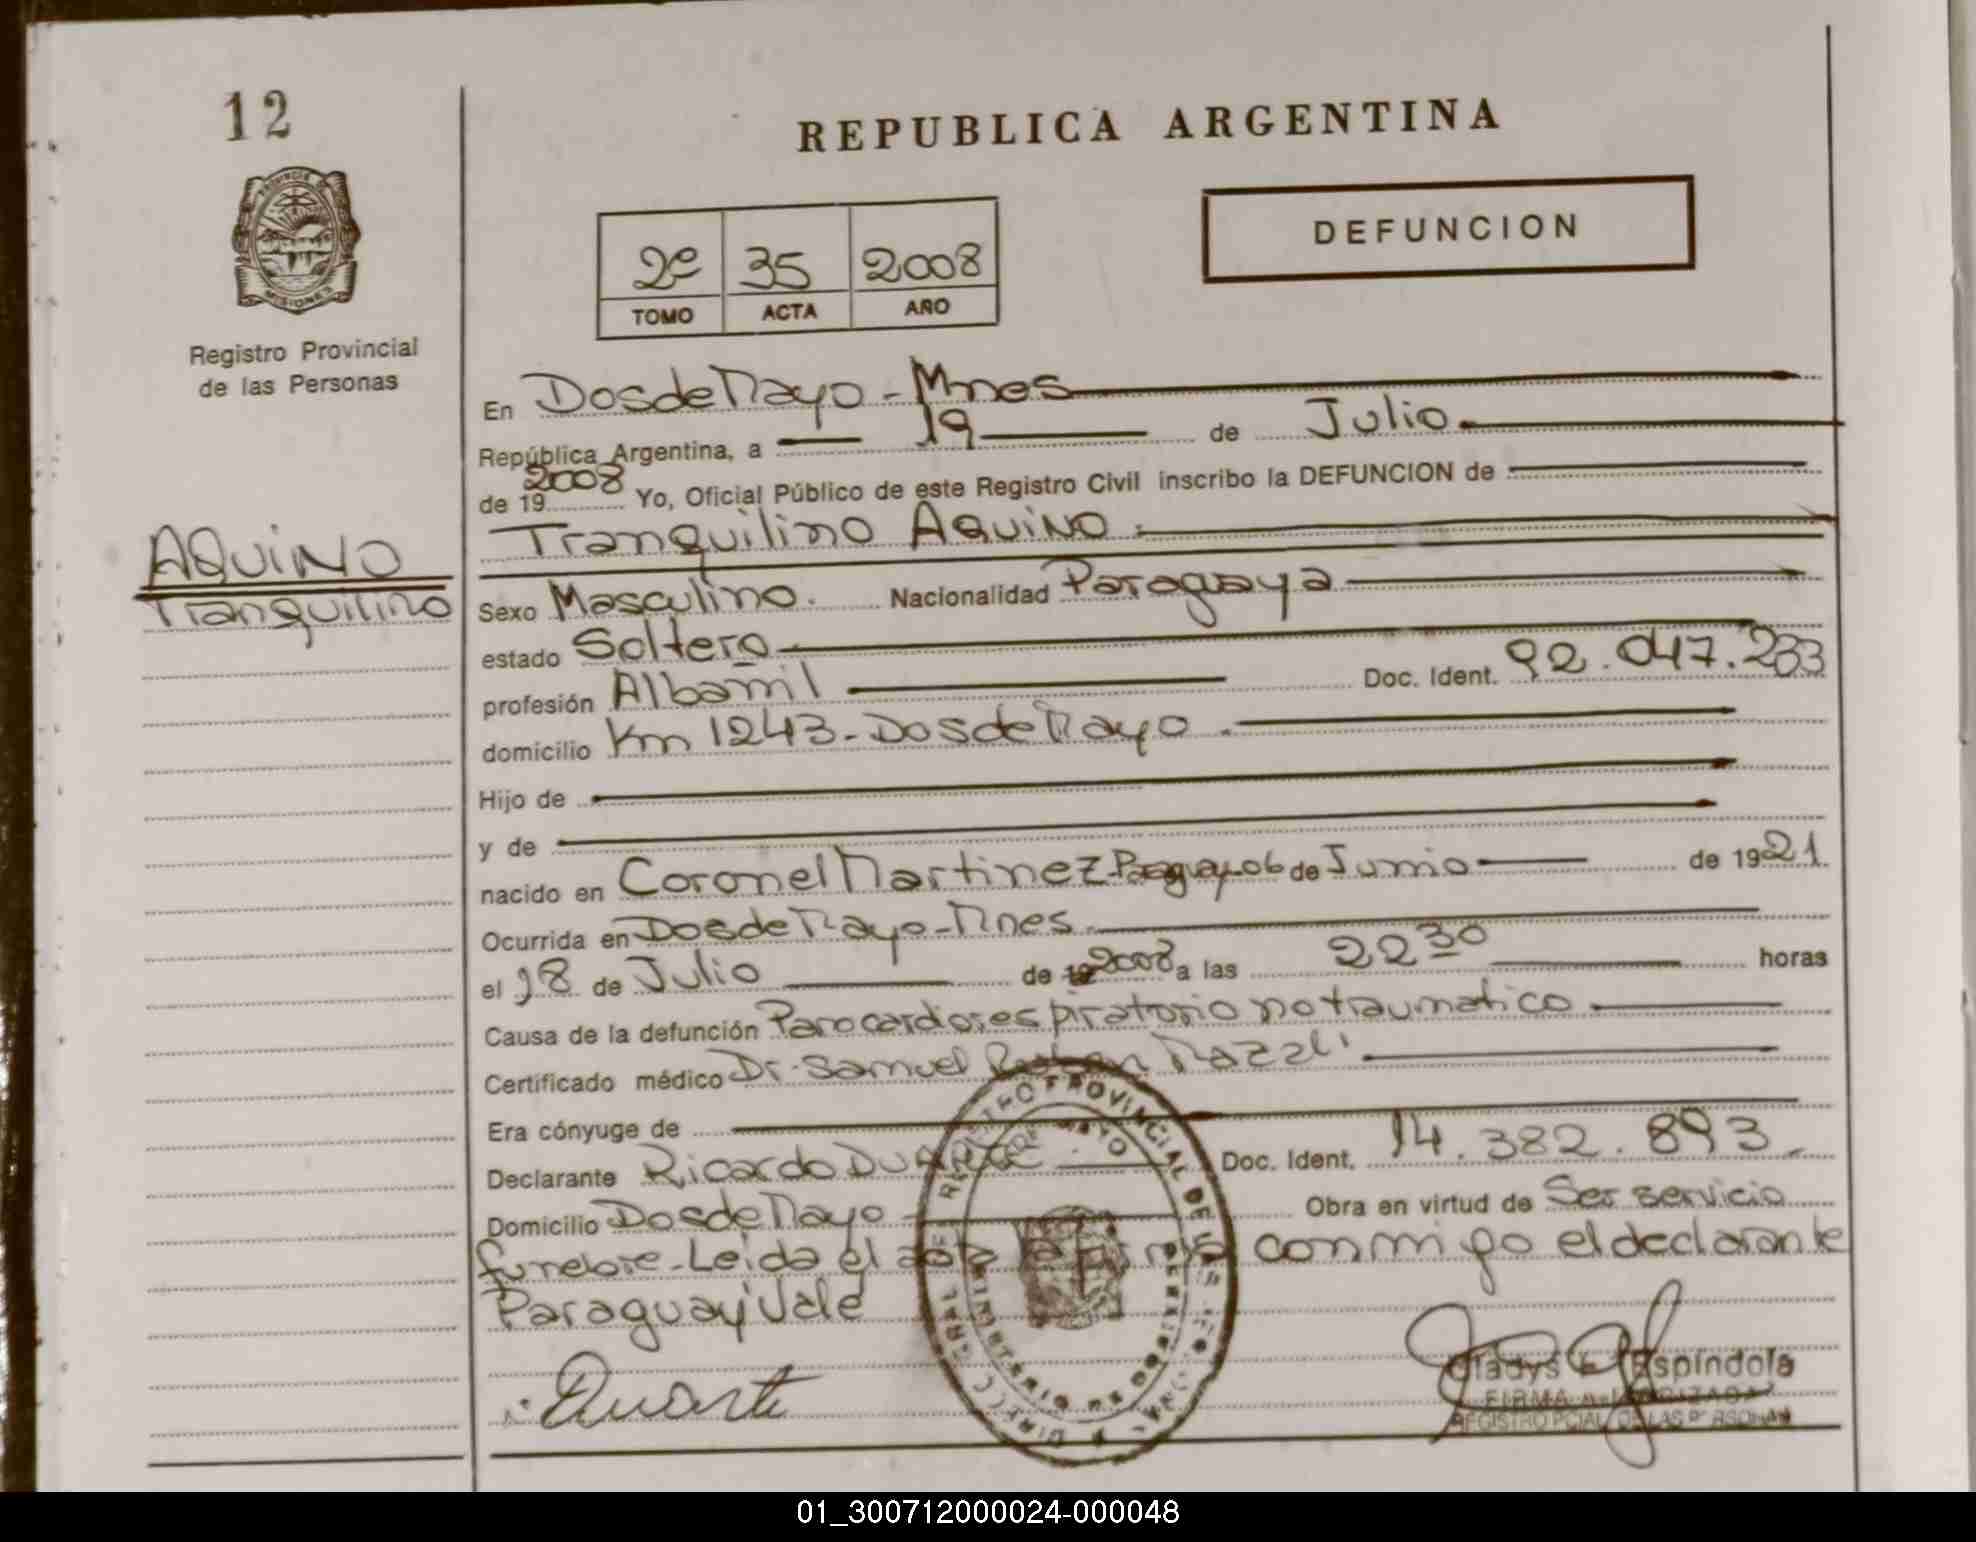 12
REPUBLICA ARGENTINA
PROVINCIA DE
MISIONES
Registro Provincial
de las Personas
DEFUNCION
2º 35 2008
TOMO ACTA AÑO
En Dos de Mayo - Mnes
República Argentina, a 19 de Julio
de 19 2008 Yo, Oficial Público de este Registro Civil inscribo la DEFUNCION de
Tranquilino AQUINO
AQUINO
Tranquilino
Sexo Masculino. Nacionalidad Paraguaya
estado Soltero
profesión Albamil Doc. Ident. 92.047.233
domicilio Km 1243 - Dos de Mayo
Hijo de
y de
nacido en Coronel Martinez Paraguay 06 de Junio de 1921
Ocurrida en Dos de Mayo - Mnes
el 18 de Julio de 2008 a las 22 30 horas
Causa de la defunción Paro cardiorespiratorio no traumatico
Certificado médico Dr. Samuel Ruben
Era cónyuge de
Declarante Ricardo DUARTE Doc. Ident. 14.382.893
Domicilio Dos de Mayo Obra en virtud de Ser servicio
funebre - Leida el acta conmigo el declarante
Paraguay Vale
Duarte
Gladys Espíndola
FIRMA AUTORIZADA
REGISTRO PCIAL DE LAS PERSONAS
REGISTRO PROVINCIAL DE LAS
01_300712000024-000048